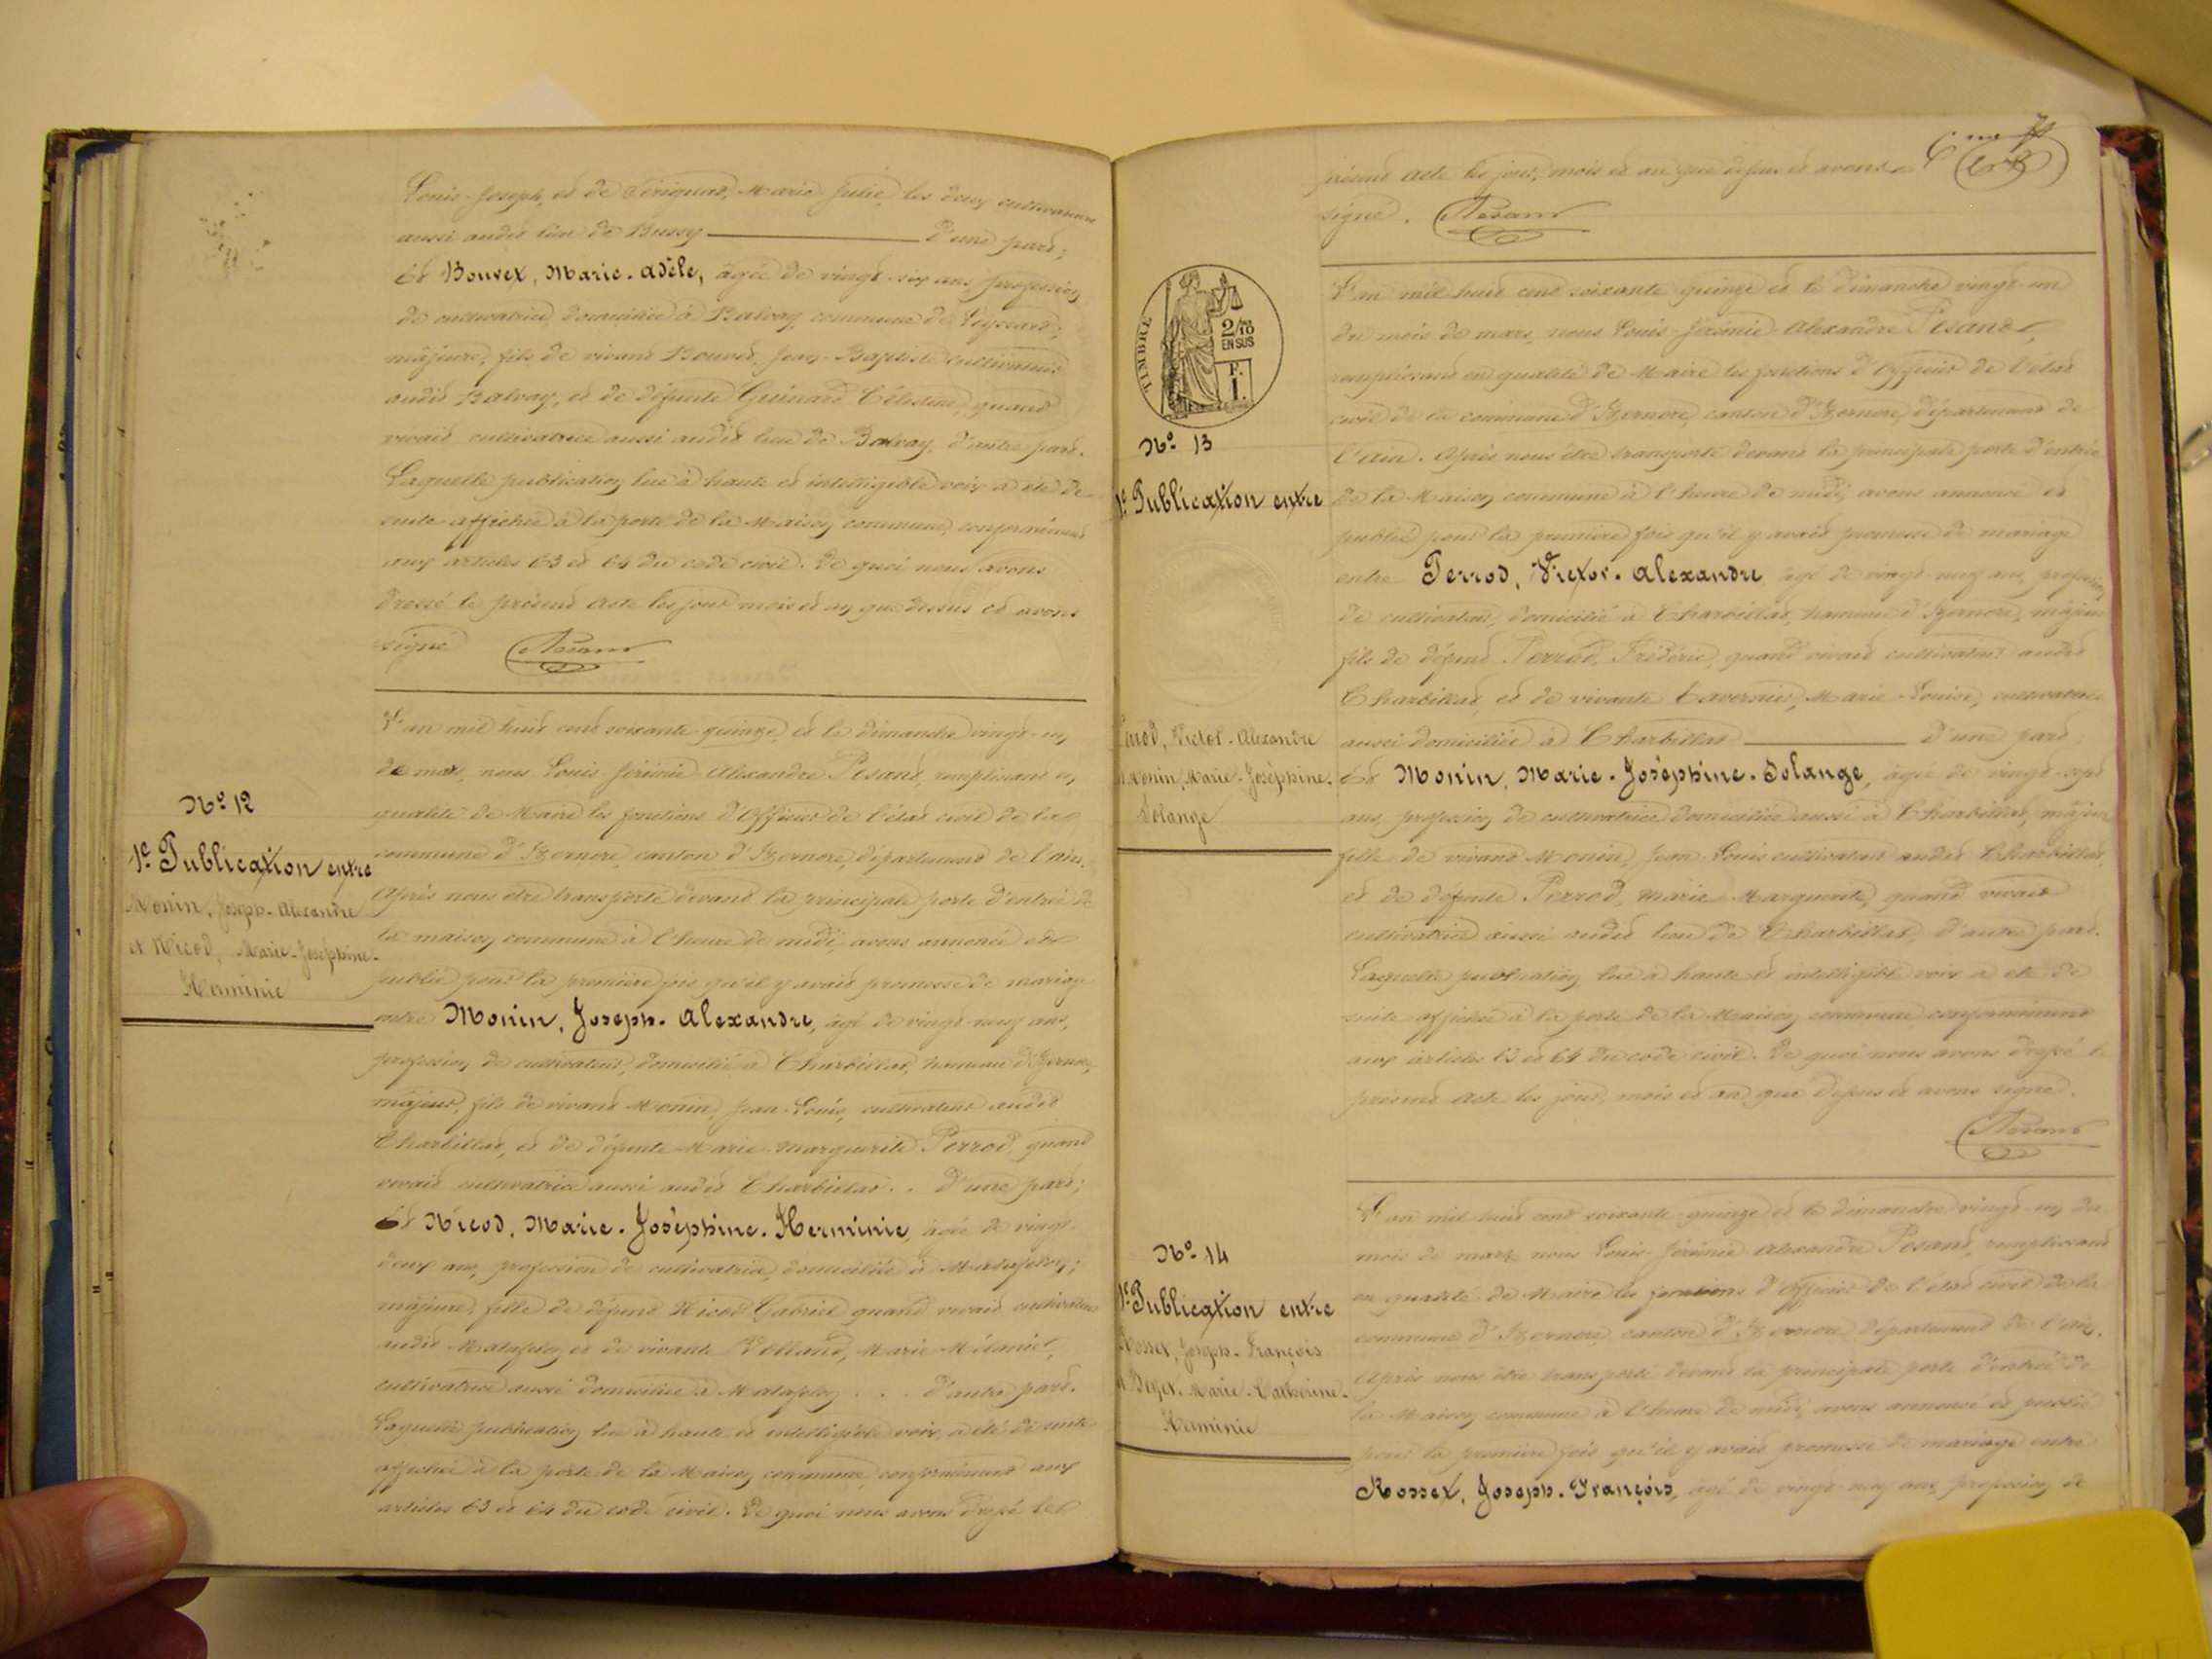 Louis-Joseph, et de Sérignat, Marie Julie, les deux cultivateurs
aussi audit lieu de Bussy d'une part;
Et Bouvet, Marie-Adèle, âgée de vingt-six ans, profession
de cultivatrice, domiciliée à Balvay, commune de Leyssard,
majeure, fils de vivant Bouvet, Jean-Baptiste cultivateur
audit Balvay, et de défunte Guinard Célestine, quand
vivait cultivatrice aussi audit lieu de Balvay, d'autre part.
Laquelle publication, lue à haute et intelligible voix a été de
suite affichée à la porte de la Maison commune, conformément
aux articles 63 et 64 du code civil. De quoi nous avons
dressé le présent Acte les jour mois et an que dessus et avons
signé Pesant
N° 12
1e Publication entre
Monin, Joseph-Alexandre
et Nicod, Marie-Joséphine-
Herminie
L'an mil huit cent soixante-quinze et le dimanche vingt-un
de mars, nous Louis-Jérémie Alexandre Pesant, remplissant en
qualité de Maire les fonctions d'Officier de l'état civil de la
commune d'Izernore, canton d'Izernore, département de l'ain.
Après nous être transporté devant la principale porte d'entrée de
la maison commune à l'heure de midi, avons annoncé et
publié pour la première fois qu'il y avait promesse de mariage
entre Monin, Joseph-Alexandre, âgé de vingt-neuf ans,
profession de cultivateur, domicilié à Charbillat, hameau d'Izernore,
majeur, fils de vivant Monin, Jean-Louis, cultivateur audit
Charbillat, et de défunte Marie-Marguerite Perrod, quand
vivait cultivatrice aussi audit Charbillat . . d'une part;
Et Nicod, Marie-Joséphine-Herminie, âgée de vingt-
deux ans, profession de cultivatrice, domiciliée à Matafelon;
majeure, fille de défunt Nicod Gabriel quand vivait cultivateur
audit Matafelon et de vivante Volland, Marie-Mélanie,
cultivatrice aussi domiciliée à Matafelon . . . d'autre part.
Laquelle publication lue à haute et intelligible voix, a été de suite
affichée à la porte de la Maison commune, conformément aux
articles 63 et 64 du code civil. De quoi nous avons dressé le
présent Acte les jour, mois et an que dessus et avons
signé. Pesant
TIMBRE
2/10
EN SUS
F.
1.
N° 13
1e Publication entre
Perrod, Victor-Alexandre
et Monin, Marie-Joséphine-
Solange
L'an mil huit cent soixante quinze et le dimanche vingt-un
du mois de mars, nous Louis-Jérémie-Alexandre Pesant,
remplissant en qualité de Maire les fonctions d'Officier de l'état
civil de la commune d'Izernore, canton d'Izernore, département de
l'ain. Après nous être transporté devant la principale porte d'entrée
de la Maison commune à l'heure de midi, avons annoncé et
publié pour la première fois qu'il y avait promesse de mariage
entre Perrod, Victor-Alexandre âgé de vingt neuf ans, profession
de cultivateur, domicilié à Charbillat, hameau d'Izernore, majeur
fils de défunt Perrod, Frédéric, quand vivait cultivateur audit
Charbillat, et de vivante Tavernier, Marie-Louise, cultivatrice
aussi domiciliée à Charbillat d'une part;
Et Monin, Marie-Joséphine-Solange, âgée de vingt-sept
ans, profession de cultivatrice domiciliée aussi à Charbillat, majeure
fille de vivant Monin, Jean-Louis cultivateur audit Charbillat,
et de défunte Perrod, Marie Marguerite, quand vivait
cultivatrice aussi audit lieu de Charbillat, d'autre part.
Laquelle publication, lue à haute et intelligible voix a été de
suite affichée à la porte de la Maison commune conformément
aux articles 63 et 64 du code civil. De quoi nous avons dressé le
présent Acte les jour, mois et an que dessus et avons signé.
Pesant
N° 14
1e Publication entre
Rosset, Joseph-François
Marie-Catherine-
Herminie
L'an mil huit cent soixante-quinze et le dimanche vingt-un du
mois de mars nous Louis-Jérémie Alexandre Pesant, remplissant
en qualité de Maire les fonctions d'Officier de l'état civil de la
commune d'Izernore, canton d'Izernore département de l'ain.
Après nous être transporté devant la principale porte d'entrée de
la Maison commune à l'heure de midi, avons annoncé et publié
pour la première fois qu'il y avait promesse de mariage entre
Rosset, Joseph-François, âgé de vingt-neuf ans, profession de